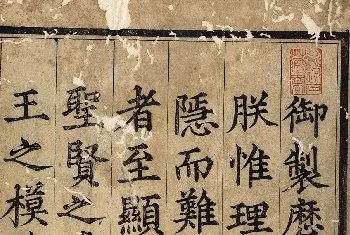 御製歷
朕惟理
隱而難
者至顯
聖賢之
王之模